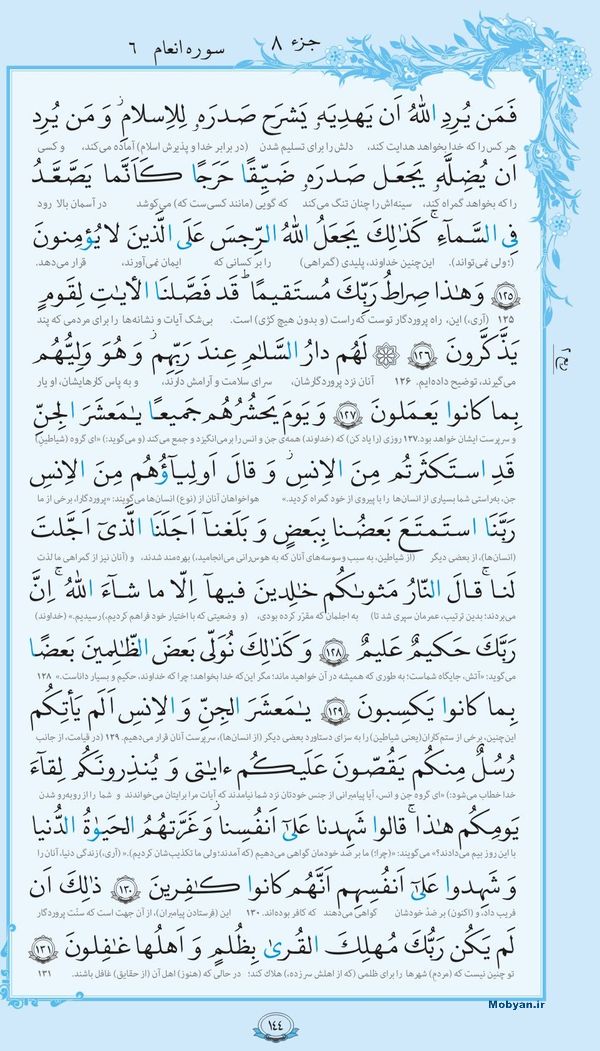 جزء ۸
سوره انعام ۶
فَمَن يُرِدِ اللهُ أَن يَهدِيَهُ يَشرَح صَدرَهُ لِلإِسلامِ ۖ وَ مَن يُرِد
هر کس را که خدا بخواهد هدایت کند، دلش را برای تسلیم شدن (در برابر خدا و پذیرش اسلام) آماده می‌کند، و کسی
أَن يُضِلَّهُ يَجعَل صَدرَهُ ضَيِّقًا حَرَجًا كَأَنَّما يَصَّعَّدُ
را که بخواهد گمراه کند، سینه‌اش را چنان تنگ می‌کند که گویی (مانند کسی‌ست که) می‌کوشد در آسمان بالا رود
فِي السَّماءِ ۚ كَذٰلِكَ يَجعَلُ اللهُ الرِّجسَ عَلَى الَّذينَ لا يُؤمِنونَ
(؛ولی نمی‌تواند). این‌چنین خداوند، پلیدی (گمراهی) را بر کسانی که ایمان نمی‌آورند، قرار می‌دهد.
۱۲۵ وَ هٰذا صِراطُ رَبِّكَ مُستَقيمًا ۗ قَد فَصَّلنَا الآياتِ لِقَومٍ
۱۲۵ (آری،) این، راه پروردگار توست که راست (و بدون هیچ کژی) است. بی‌شک آیات و نشانه‌ها را برای مردمی که پند
يَذَّكَّرونَ ۱۲۶ لَهُم دارُ السَّلامِ عِندَ رَبِّهِم ۖ وَ هُوَ وَلِيُّهُم
می‌گیرند، توضیح داده‌ایم. ۱۲۶ آنان نزد پروردگارشان، سرای سلامت و آرامش دارند، و به پاس کارهایشان، او یار
بِما كانوا يَعمَلونَ ۱۲۷ وَ يَومَ يَحشُرُهُم جَميعًا يا مَعشَرَ الجِنِّ
و سرپرست ایشان خواهد بود.۱۲۷ روزی (را یاد کن) که (خداوند) همه‌ی جن و انس را برمی‌انگیزد و جمع می‌کند (و می‌گوید:) «ای گروه (شیاطین)
قَدِ استَكثَرتُم مِنَ الإِنسِ ۖ وَ قالَ أَولِياؤُهُم مِنَ الإِنسِ
جن، به‌راستی شما بسیاری از انسان‌ها را با پیروی از خود گمراه کردید.» هواخواهان آنان از (نوع) انسان‌ها می‌گویند: «پروردگارا، برخی از ما
رَبَّنَا استَمتَعَ بَعضُنا بِبَعضٍ وَ بَلَغنا أَجَلَنَا الَّذي أَجَّلتَ
(انسان‌ها)، از بعضی دیگر (از شیاطین، به سبب وسوسه‌های آنان که به هوس‌رانی می‌انجامید،) بهره‌مند شدند، و (آنان نیز از گمراهی ما لذت
لَنا ۚ قالَ النّارُ مَثواكُم خالِدينَ فيها إِلّا ما شاءَ اللهُ ۗ إِنَّ
می‌بردند؛ بدین ترتیب، عمرمان سپری شد تا) به اجلمان که مقرّر کرده بودی، (و وضعیتی که با اختیار خود فراهم کردیم،) رسیدیم.» (خداوند)
رَبَّكَ حَكيمٌ عَليمٌ ۱۲۸ وَ كَذٰلِكَ نُوَلّي بَعضَ الظّالِمينَ بَعضًا
می‌گوید: «آتش، جایگاه شماست؛ به طوری که همیشه در آن خواهید ماند؛ مگر این‌که خدا بخواهد؛ چرا که خداوند، حکیم و بسیار داناست.» ۱۲۸
بِما كانوا يَكسِبونَ ۱۲۹ يا مَعشَرَ الجِنِّ وَ الإِنسِ أَلَم يَأتِكُم
این‌چنین، برخی از ستم‌کاران(یعنی شیاطین) را به سزای دستاورد بعضی دیگر (از انسان‌ها)، سرپرست آنان قرار می‌دهیم. ۱۲۹ (در قیامت، از جانب
رُسُلٌ مِنكُم يَقُصّونَ عَلَيكُم آياتي وَ يُنذِرونَكُم لِقاءَ
خدا خطاب می‌شود:) «ای گروه جن و انس، آیا پیامبرانی از جنس خودتان نزد شما نیامدند که آیات مرا برایتان می‌خواندند و شما را از روبه‌رو شدن
يَومِكُم هٰذا ۚ قالوا شَهِدنا عَلىٰ أَنفُسِنا ۖ وَ غَرَّتهُمُ الحَياةُ الدُّنيا
با این روز بیم می‌دادند؟» می‌گویند: «(چرا؛) ما بر ضد خودمان گواهی می‌دهیم (که آمدند؛ ولی تکذیب‌شان کردیم).» (آری،) زندگی دنیا، آنان را
وَ شَهِدوا عَلىٰ أَنفُسِهِم أَنَّهُم كانوا كافِرينَ ۱۳۰ ذٰلِكَ أَن
فریب داد، و (اکنون) بر ضدّ خودشان گواهی می‌دهند که کافر بوده‌اند. ۱۳۰ این (فرستادن پیامبران)، از آن جهت است که سنّت پروردگار
لَم يَكُن رَبُّكَ مُهلِكَ القُرىٰ بِظُلمٍ وَ أَهلُها غافِلونَ ۱۳۱
تو چنین نیست که (مردم) شهرها را برای ظلمی (که از اهلش سرزده،) هلاک کند؛ در حالی که (هنوز) اهل آن (از حقایق) غافل باشند. ۱۳۱
Mobyan.ir
۱۴۴